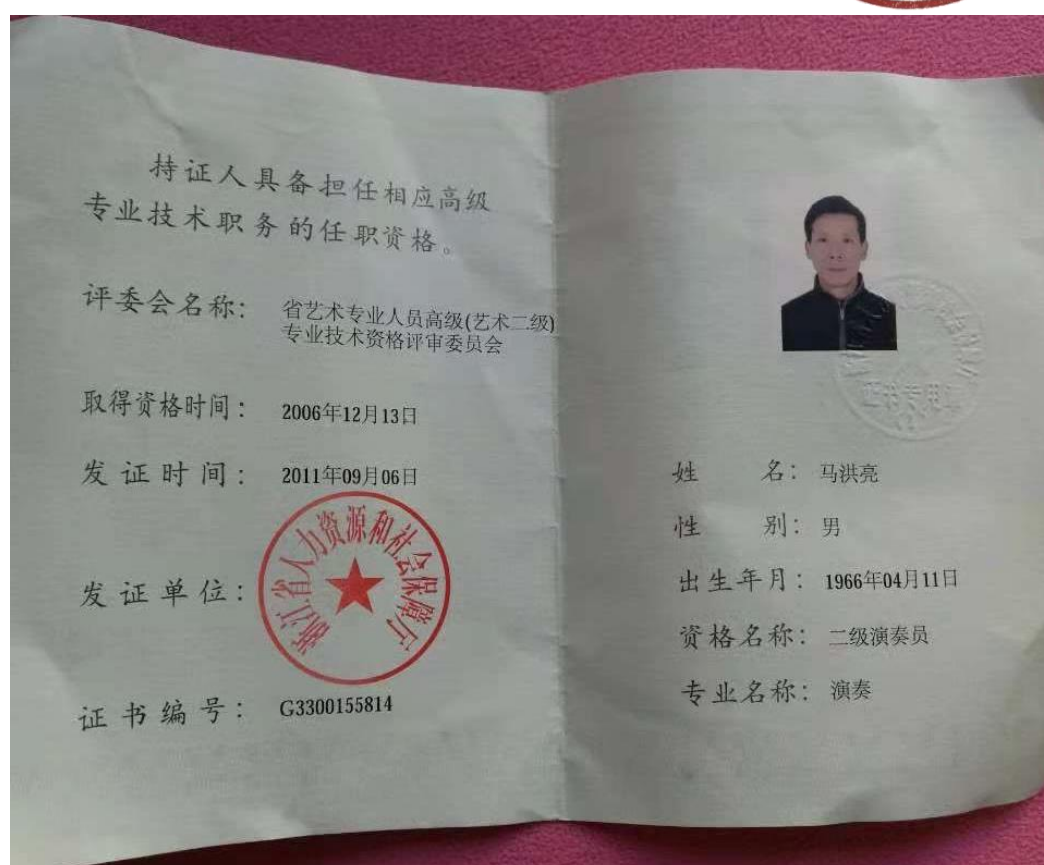 持证人具备担任相应高级
专业技术职务的任职资格。
评委会名称： 省艺术专业人员高级(艺术二级)
专业技术资格评审委员会
取得资格时间： 2006年12月13日
发证时间： 2011年09月06日
发证单位：
浙江省人力资源和社会保障厅
证书编号： G3300155814
证书专用
姓名： 马洪亮
性别： 男
出生年月： 1966年04月11日
资格名称： 二级演奏员
专业名称： 演奏